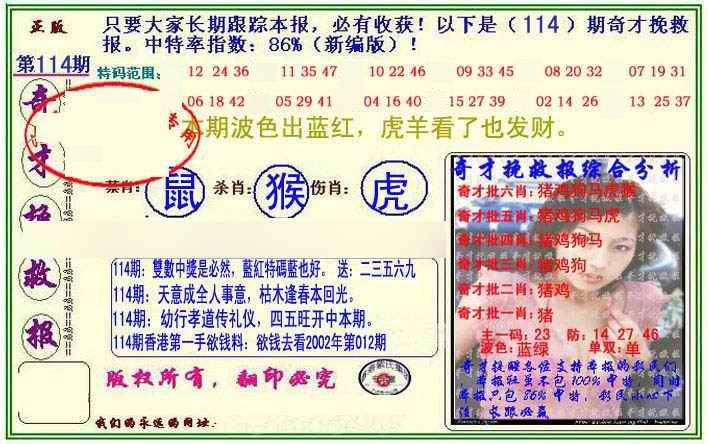 正版
只要大家长期跟踪本报，必有收获！以下是（114）期奇才挽救
报。中特率指数：86%（新编版）！
第114期
特码范围：
12 24 36 11 35 47 10 22 46 09 33 45 08 20 32 07 19 31
06 18 42 05 29 41 04 16 40 15 27 39 02 14 26 13 25 37
本期波色出蓝红，虎羊看了也发财。
奇
才
救
报
禁肖： 鼠 杀肖： 猴 伤肖： 虎
114期：雙數中獎是必然，藍紅特碼藍也好。 送：二三五六九
114期：天意成全人事意，枯木逢春本回光。
114期：幼行孝道传礼仪，四五旺开中本期。
114期香港第一手欲钱料：欲钱去看2002年第012期
版权所有，翻印必究
我们的永远的网址：
奇才挽救报综合分析
奇才批六肖：猪鸡狗马虎猴
奇才批五肖：猪鸡狗马虎
奇才批四肖：猪鸡狗马
奇才批三肖：猪鸡狗
奇才批二肖：猪鸡
奇才批一肖：猪
主一码：23 防：14 27 46
波色：蓝绿 单双：单
奇才挽救各位支持本报的彩民们
本报社虽不包100%中特，同时
本报只包86%中特，彩民小心下
注，长跟必赢